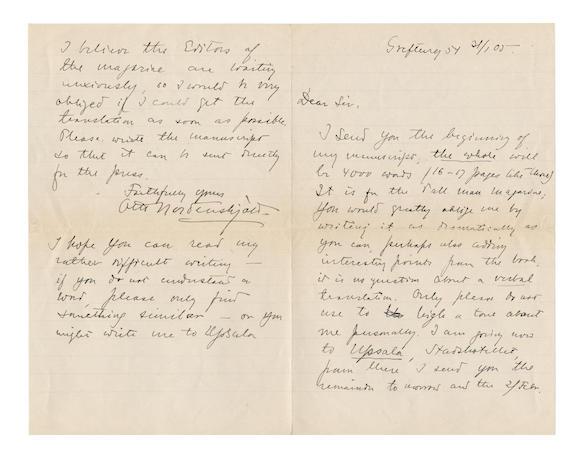 Greftureg 54 31/1 05.
Dear Sir.
I send you the beginning of
my manuscript, the whole will
be 4000 words (16-17 pages like these)
It is for the Pall Mall Magazine.
You would greatly oblige me by
writing it as dramatically as
you can, perhaps also adding
interesting points from the book,
it is no question about a verbal
translation. Only please do not
use to high a tone about
me personally. I am going now
to Upsala, Stadshotellet,
from there I send you the
remainder to morrow and the 2/Feb.
I believe the Editors of
the magazine are waiting
anxiously, so I would be very
obliged if I could get the
translation as soon as possible.
Please write the manuscript
so that it can be sent directly
for the press.
Faithfully yours
Otto Nordenskjöld.
I hope you can read my
rather difficult writing –
if you do not understand a
word, please only find
something similar – or you
might write me to Upsala